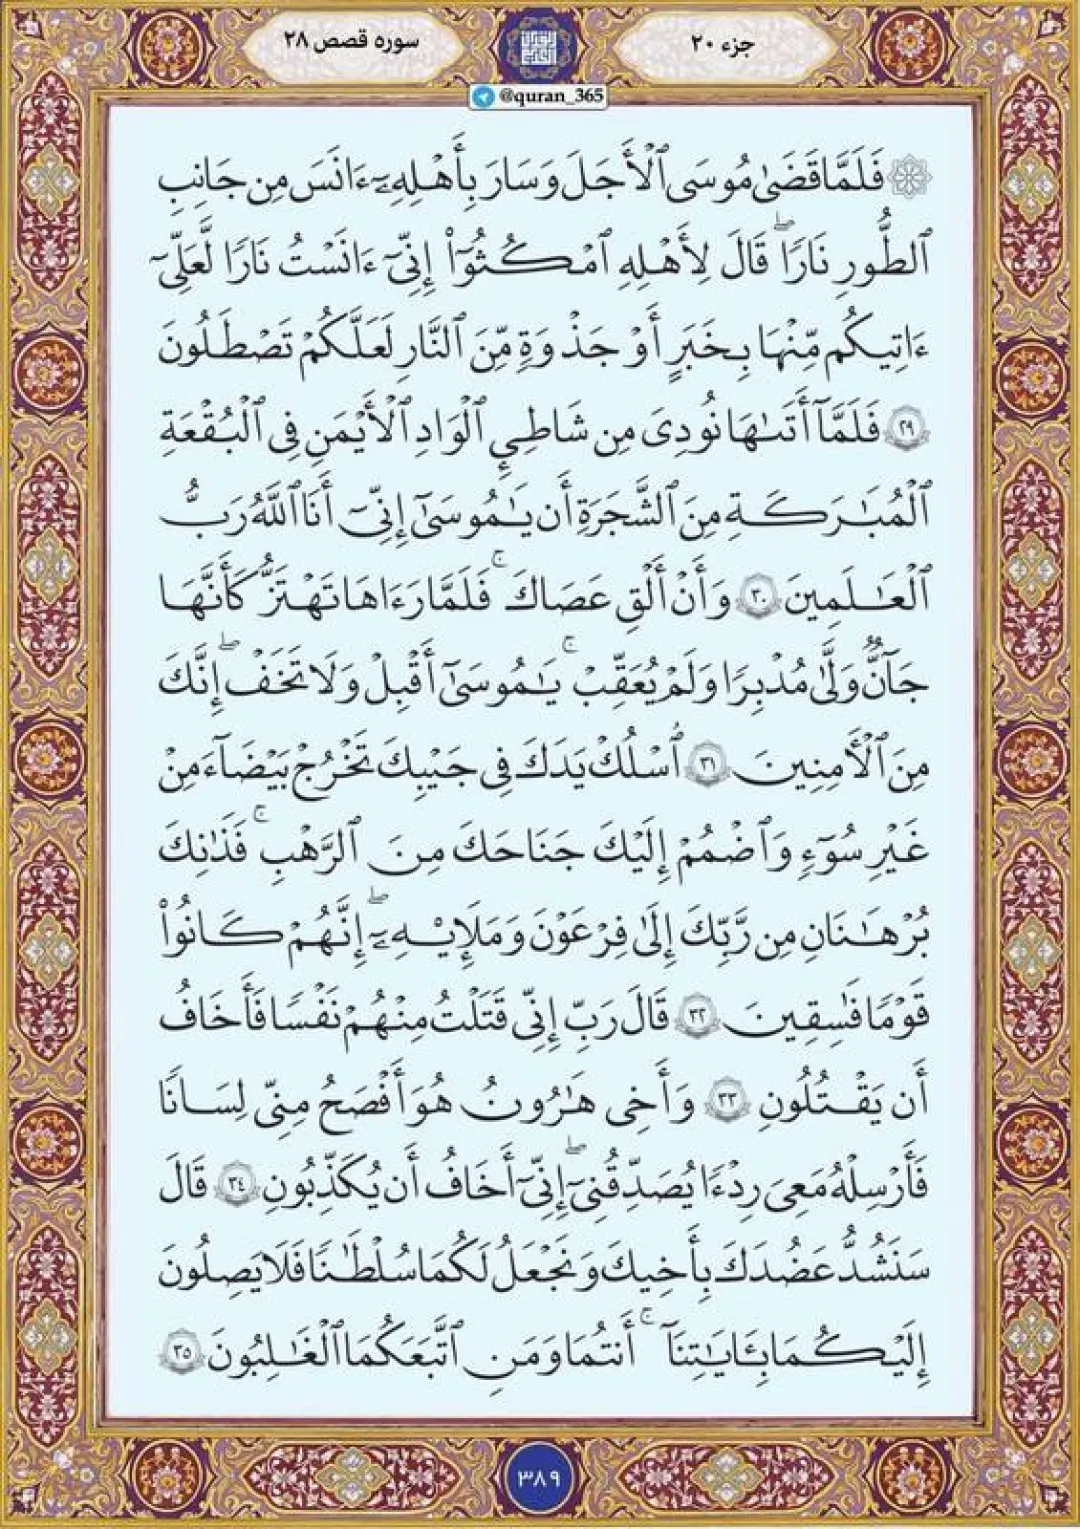 سوره قصص ۲۸
جزء ۲۰
@quran_365
۞ فَلَمَّا قَضَىٰ مُوسَى ٱلْأَجَلَ وَسَارَ بِأَهْلِهِۦٓ ءَانَسَ مِن جَانِبِ
ٱلطُّورِ نَارًاۖ قَالَ لِأَهْلِهِ ٱمْكُثُوٓا۟ إِنِّىٓ ءَانَسْتُ نَارًا لَّعَلِّىٓ
ءَاتِيكُم مِّنْهَا بِخَبَرٍ أَوْ جَذْوَةٍ مِّنَ ٱلنَّارِ لَعَلَّكُمْ تَصْطَلُونَ
۲۹ فَلَمَّآ أَتَىٰهَا نُودِىَ مِن شَاطِئِ ٱلْوَادِ ٱلْأَيْمَنِ فِى ٱلْبُقْعَةِ
ٱلْمُبَٰرَكَةِ مِنَ ٱلشَّجَرَةِ أَن يَٰمُوسَىٰٓ إِنِّىٓ أَنَا ٱللَّهُ رَبُّ
ٱلْعَٰلَمِينَ ۳۰ وَأَنْ أَلْقِ عَصَاكَۚ فَلَمَّا رَءَاهَا تَهْتَزُّ كَأَنَّهَا
جَآنٌّ وَلَّىٰ مُدْبِرًا وَلَمْ يُعَقِّبْۚ يَٰمُوسَىٰٓ أَقْبِلْ وَلَا تَخَفْۖ إِنَّكَ
مِنَ ٱلْأَمِنِينَ ۳۱ ٱسْلُكْ يَدَكَ فِى جَيْبِكَ تَخْرُجْ بَيْضَآءَ مِنْ
غَيْرِ سُوٓءٍ وَٱضْمُمْ إِلَيْكَ جَنَاحَكَ مِنَ ٱلرَّهْبِۚ فَذَٰنِكَ
بُرْهَٰنَانِ مِن رَّبِّكَ إِلَىٰ فِرْعَوْنَ وَمَلَإِي۟هِۦٓۖ إِنَّهُمْ كَانُوا۟
قَوْمًا فَٰسِقِينَ ۳۲ قَالَ رَبِّ إِنِّى قَتَلْتُ مِنْهُمْ نَفْسًا فَأَخَافُ
أَن يَقْتُلُونِ ۳۳ وَأَخِى هَٰرُونُ هُوَ أَفْصَحُ مِنِّى لِسَانًا
فَأَرْسِلْهُ مَعِىَ رِدْءًا يُصَدِّقُنِىٓۖ إِنِّىٓ أَخَافُ أَن يُكَذِّبُونِ ۳٤ قَالَ
سَنَشُدُّ عَضُدَكَ بِأَخِيكَ وَنَجْعَلُ لَكُمَا سُلْطَٰنًا فَلَا يَصِلُونَ
إِلَيْكُمَا بِـَٔايَٰتِنَآۚ أَنتُمَا وَمَنِ ٱتَّبَعَكُمَا ٱلْغَٰلِبُونَ ۳٥
۳۸۹